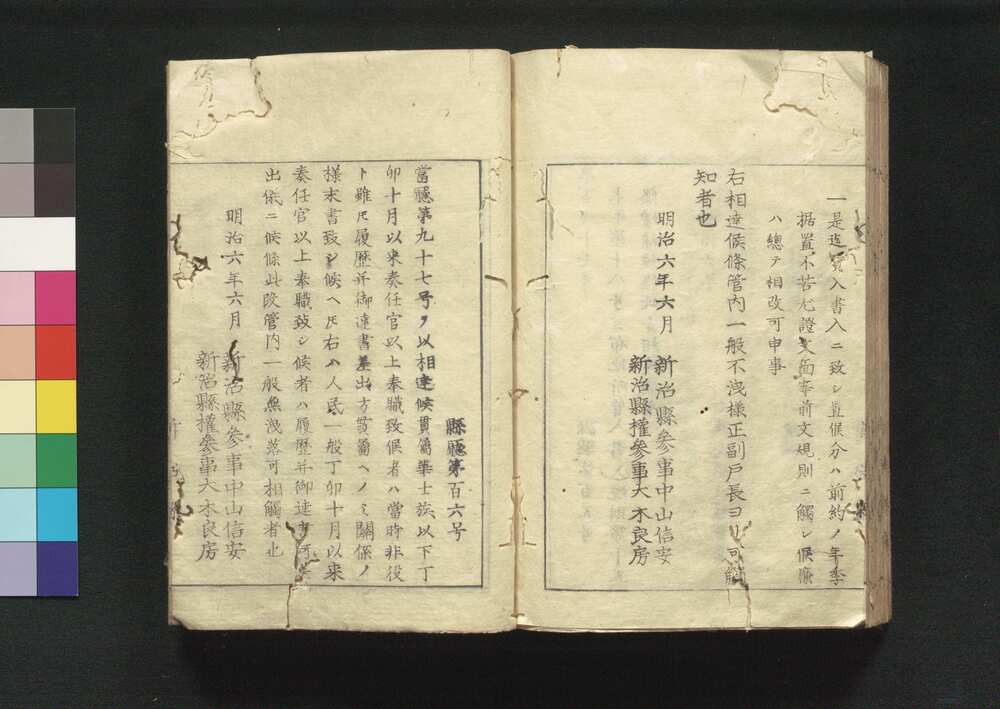 一是迄質入書入ニ致シ置候分ハ前約ノ年季
据置不苦尤證文面事前文規則ニ觸レ候廉
ハ總テ相改可申事
右相達候條管内一般不洩様正副戸長ヨリ可觸
知者也
明治六年六月
新治縣參事中山信安
新治縣權參事大木良房
縣廳第百六号
當廳第九十七号ヲ以相達候貫屬華士族以下丁
卯十月以来奏任官以上奉職致候者ハ當時非役
ト雖𪜈履歴并御達書差出方貫屬ヘノミ關係ノ
様末書致シ候ヘ𪜈右ハ人民一般丁卯十月以来
奏任官以上奉職致シ候者ハ履歴并御達書可差
出儀ニ候條此段管内一般無洩落可相觸者也
明治六年六月
新治縣參事中山信安
新治縣權參事大木良房